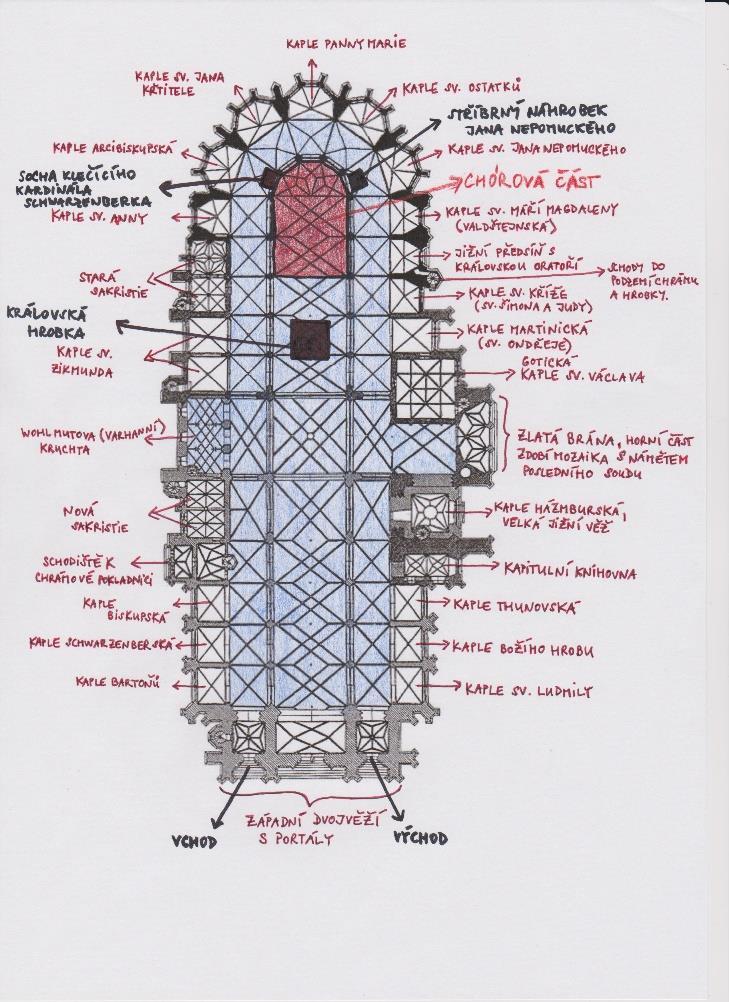 KAPLE PANNY MARIE
KAPLE SV. JANA
KŘTITELE
KAPLE SV. OSTATKŮ
STŘÍBRNÝ NÁHROBEK
JANA NEPOMUCKÉHO
KAPLE ARCIBISKUPSKÁ
KAPLE SV. JANA NEPOMUCKÉHO
SOCHA KLEČÍCÍHO
KARDINÁLA
SCHWARZENBERKA
CHÓROVÁ ČÁST
KAPLE SV. ANNY
KAPLE SV. MÁŘÍ MAGDALENY
(VALDŠTEJNSKÁ)
JIŽNÍ PŘEDSÍŇ S
KRÁLOVSKOU ORATOŘÍ
SCHODY DO
PODZEMÍ CHRÁMU
A HROBKY.
STARÁ
SAKRISTIE
KAPLE SV. KŘÍŽE
(SV. ŠIMONA A JUDY)
KRÁLOVSKÁ
HROBKA
KAPLE MARTINICKÁ
(SV. ONDŘEJE)
KAPLE SV.
ZIKMUNDA
GOTICKÁ
KAPLE SV. VÁCLAVA
WOHLMUTOVA (VARHANNÍ)
KRUCHTA
ZLATÁ BRÁNA, HORNÍ ČÁST
ZDOBÍ MOZAIKA S NÁMĚTEM
POSLEDNÍHO SOUDU
NOVÁ
SAKRISTIE
KAPLE HÁZMBURSKÁ,
VELKÁ JIŽNÍ VĚŽ
SCHODIŠTĚ K
CHRÁMOVÉ POKLADNICI
KAPITULNÍ KNIHOVNA
KAPLE
BISKUPSKÁ
KAPLE THUNOVSKÁ
KAPLE SCHWARZENBERSKÁ
KAPLE BOŽÍHO HROBU
KAPLE BARTOŇŮ
KAPLE SV. LUDMILY
ZÁPADNÍ DVOJVĚŽÍ
S PORTÁLY
VCHOD
VÝCHOD